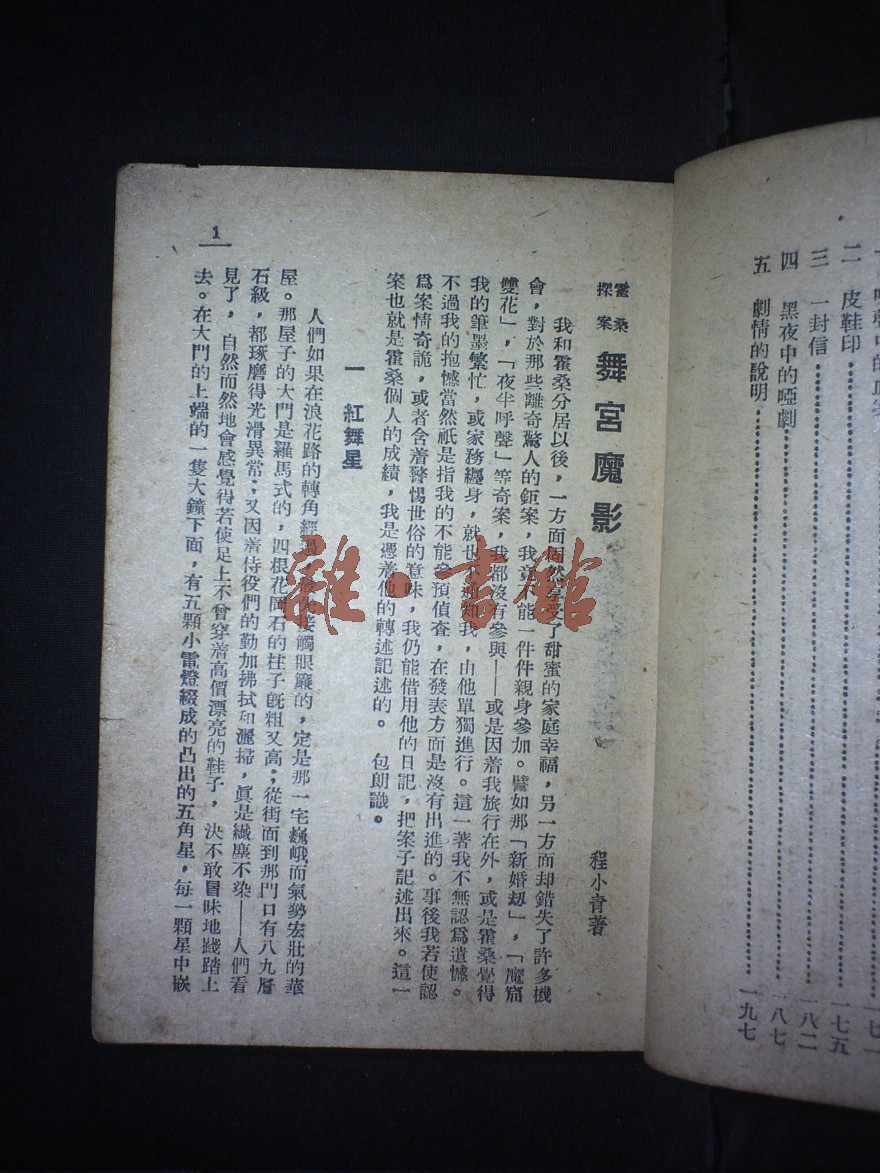 一七一
二 皮鞋印……一七五
三 一封信……一八二
四 黑夜中的啞劇……一八七
五 劇情的說明……一九七
霍桑
探案
舞宮魔影
程小青著
我和霍桑分居以後，一方面固然享受了甜蜜的家庭幸福，另一方面却錯失了許多機
會，對於那些離奇驚人的鉅案，我竟不能一件件親身參加。譬如那「新婚刼」，「魔窟
雙花」，「夜半呼聲」等奇案，我都沒有參與——或是因着我旅行在外，或是霍桑覺得
我的筆墨繁忙，或家務纏身，就也不通知我，由他單獨進行。這一著我不無認爲遺憾。
不過我的抱憾當然祇是指我的不能參預偵查，在發表方面是沒有出進的。事後我若使認
爲案情奇詭，或者含着警惕世俗的意味，我仍能借用他的日記，把案子記述出來。這一
案也就是霍桑個人的成績，我是憑着他的轉述記述的。 包朗識。
一 紅舞星
人們如果在浪花路的轉角經過，接觸眼簾的，定是那一宅巍峨而氣勢宏壯的華
屋。那屋子的大門是羅馬式的，四根花岡石的柱子旣粗又高；從街面到那門口有八九層
石級，都琢磨得光滑異常；又因着侍役們的勤加拂拭和灑掃，眞是纖塵不染——人們看
見了，自然而然地會感覺得若使足上不曾穿着高價漂亮的鞋子，決不敢冒昧地踐踏上
去。在大門的上端的一隻大鐘下面，有五顆小電燈綴成的凸出的五角星，每一顆星中嵌
1
雜·書館